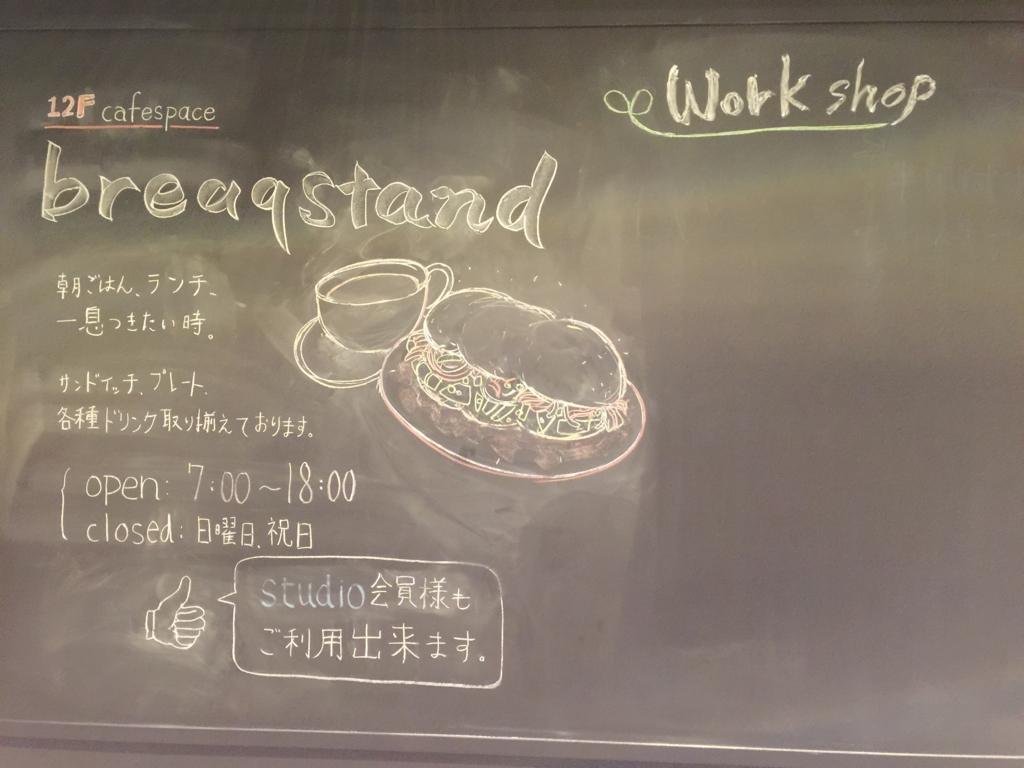 12F cafespace
breaqstand
朝ごはん、ランチ、
一息つきたい時。
サンドイッチ、プレート、
各種ドリンク取り揃えております。
open: 7:00~18:00
closed: 日曜日、祝日
studio会員様も
ご利用出来ます。
Work shop